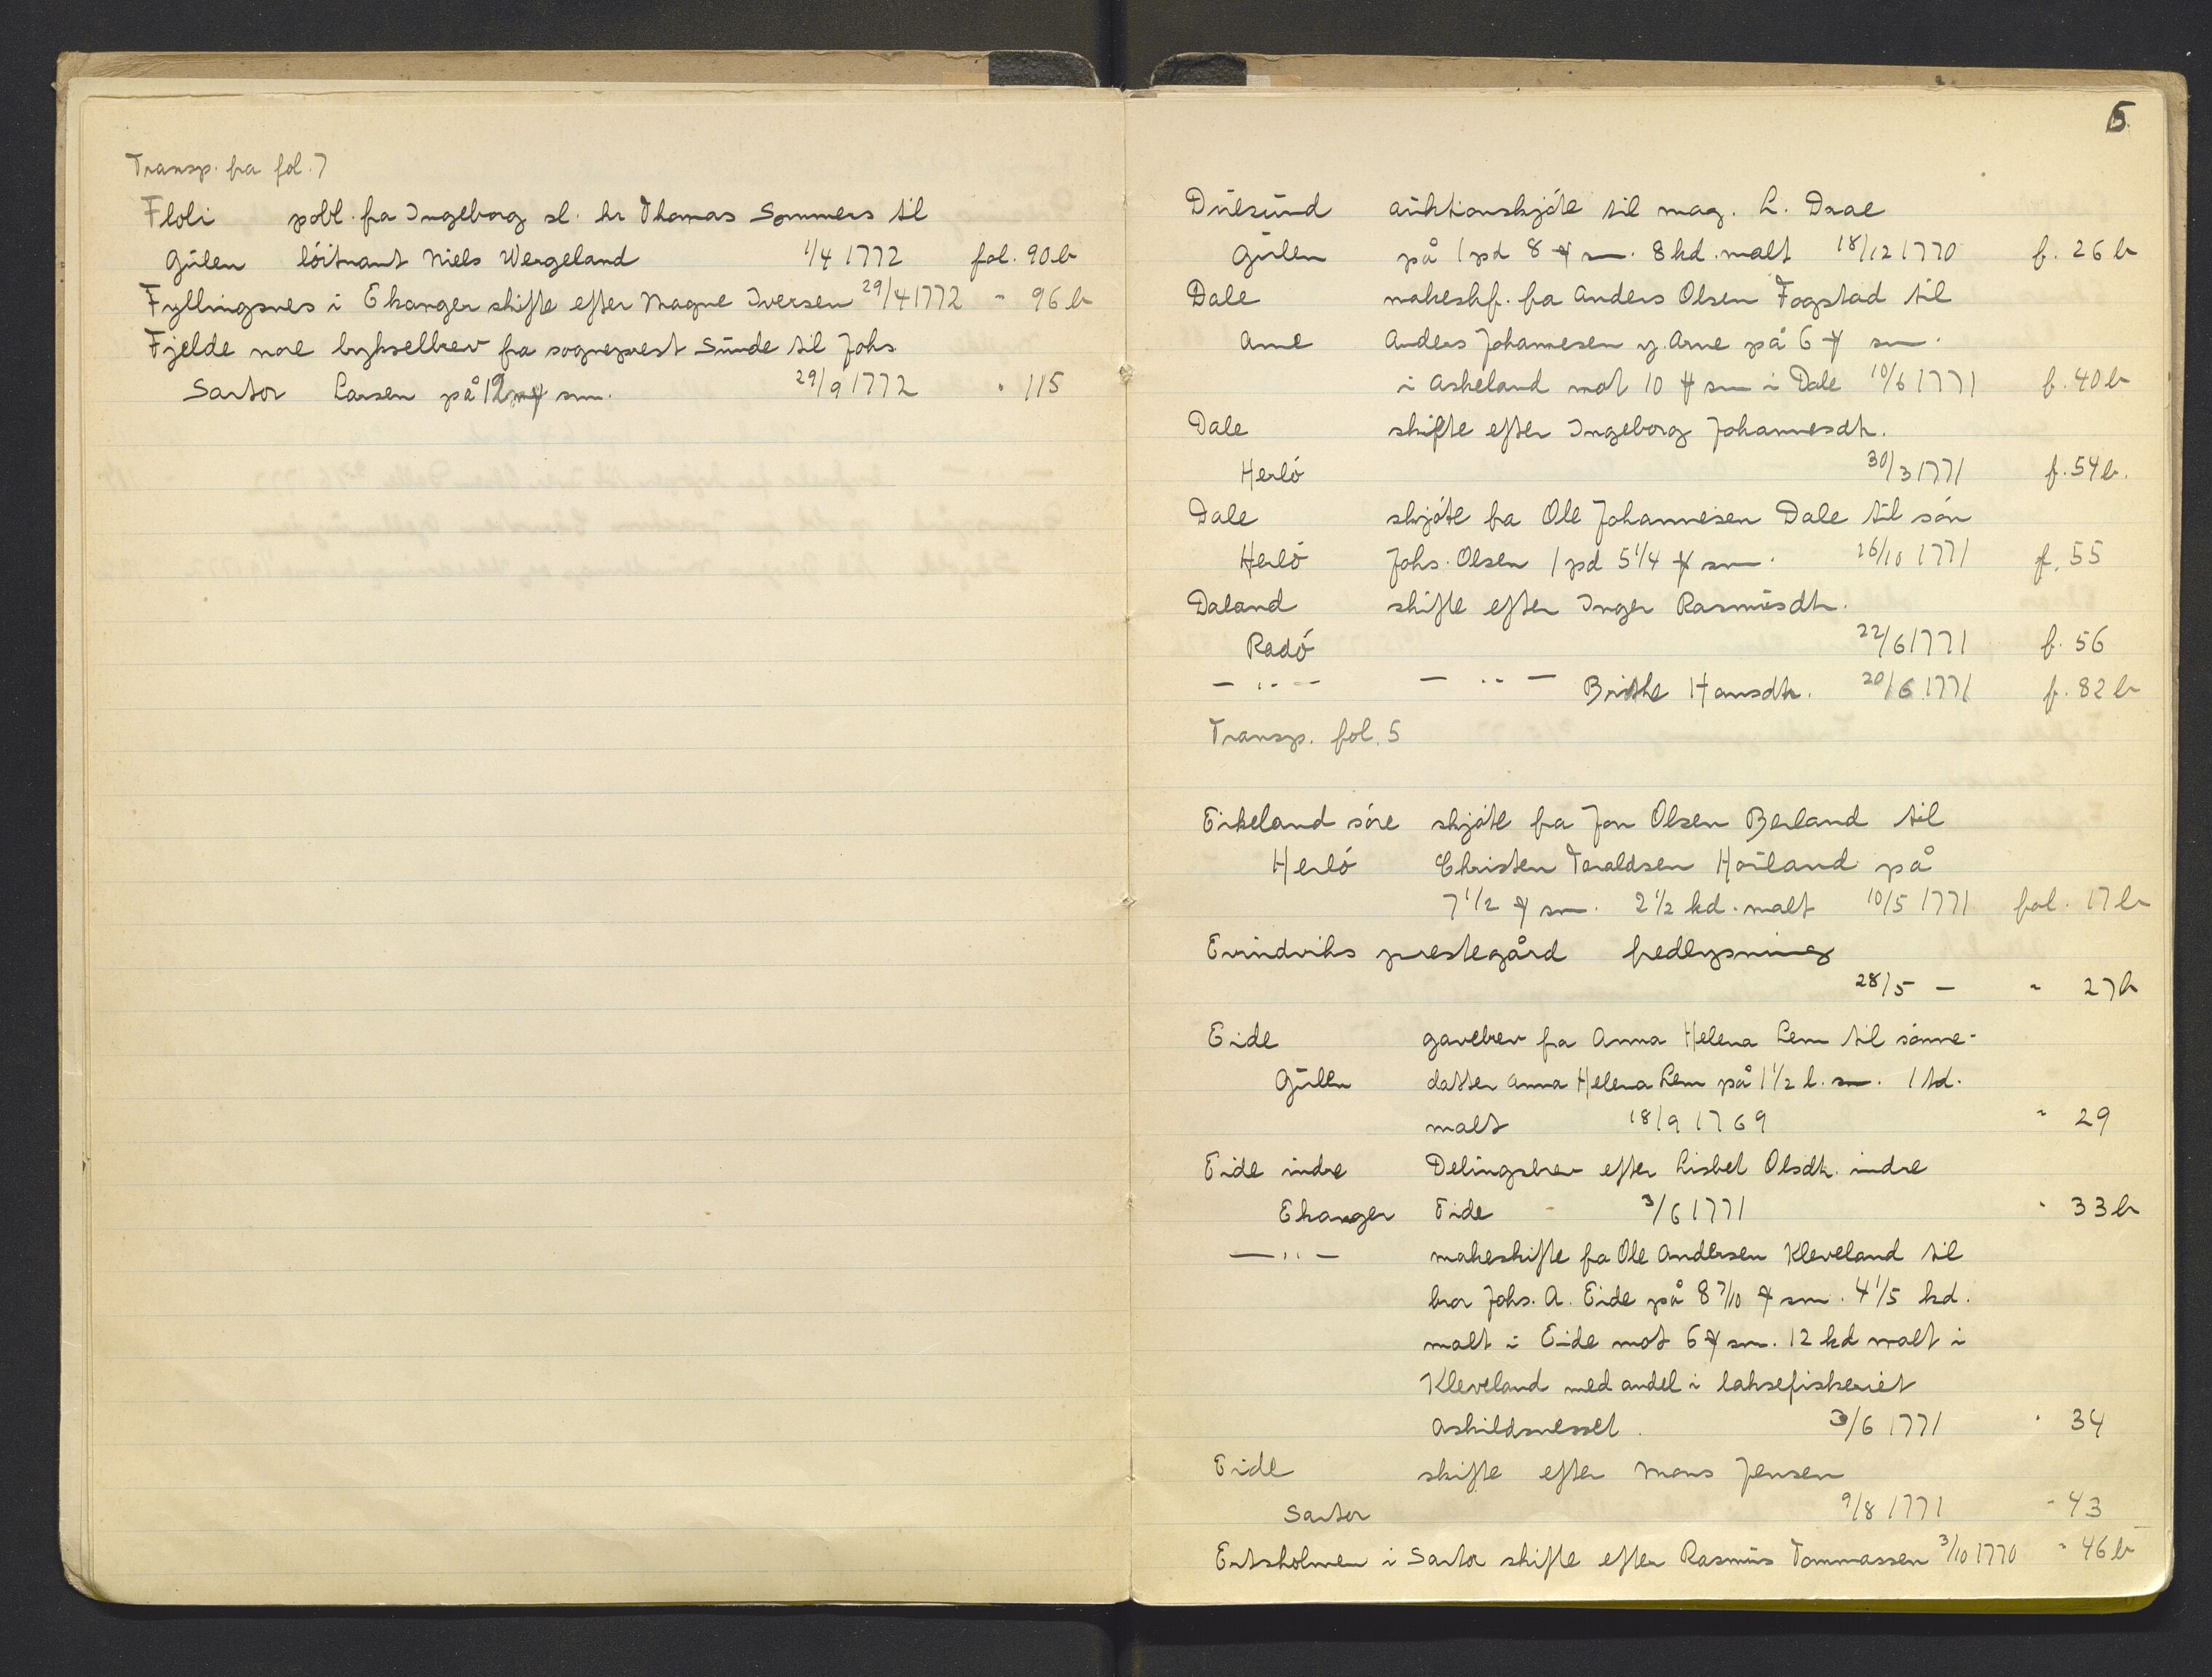 Transp. fra fol. 7
Floli pobl. fra Ingeborg sl. hr Thomas Sommers til
Gulen löitnant Niels Wergeland 1/4 1772 fol. 90 b
Fyllingsnes i Ekanger skifte efter Magne Iversen 29/4 1772 " 96 b
Fjelde nore bykselbrev fra sogneprest Sunde til Johs
Sartor Larsen på 12 m℔ sm. 29/9 1772 " 115
5
Duesund auktionskjöte til mag. L. Daae
Gulen på 1 pd 8 ℔ sm. 8 kd. malt 18/12 1770 f. 26 b
Dale makeskf. fra Anders Olsen Fogstad til
Arne Anders Johannesen y. Arne på 6 ℔ sm.
i Askeland mot 10 ℔ sm i Dale 10/6 1771 f. 40 b
Dale skifte efter Ingeborg Johannesdtr.
Herlö 30/3 1771 f. 54 b.
Dale skjöte fra Ole Johannesen Dale til sön
Herlö Johs. Olsen 1 pd 5 1/4 ℔ sm. 26/10 1771 f. 55
Daland skifte efter Inger Rasmusdtr.
Radö 22/6 1771 f. 56
— " — — " — Brithe Hansdtr. 20/6 1771 f. 82 b
Transp. fol. 5
Eikeland söre skjöte fra Jon Olsen Berland til
Herlö Christen Taraldsen Houland på
7 1/2 ℔ sm. 2 1/2 kd. malt 10/5 1771 fol. 17 b
Evindviks prestegård fredlysning
28/5 — " 27 b
Eide gavebrev fra Anna Helena Lem til sönne-
Gulen datter Anna Helena Lem på 1 1/2 l. sm. 1 td.
malt 18/9 1769 " 29
Eide indre Delingsbrev efter Lisbet Olsdtr. indre
Ekanger Eide 3/6 1771 " 33 b
— " — makeskifte fra Ole Andersen Kleveland til
bror Johs. A. Eide på 8 7/10 ℔ sm. 4 1/5 kd.
malt i Eide mot 6 ℔ sm. 12 kd malt i
Kleveland med andel i laksefiskeriet
Askildsnesset. 3/6 1771 " 34
Eide skifte efter Mons Jensen
Sartor 9/8 1771 " 43
Ertsholmen i Sartor skifte efter Rasmus Tommassen 3/10 1770 " 46 b